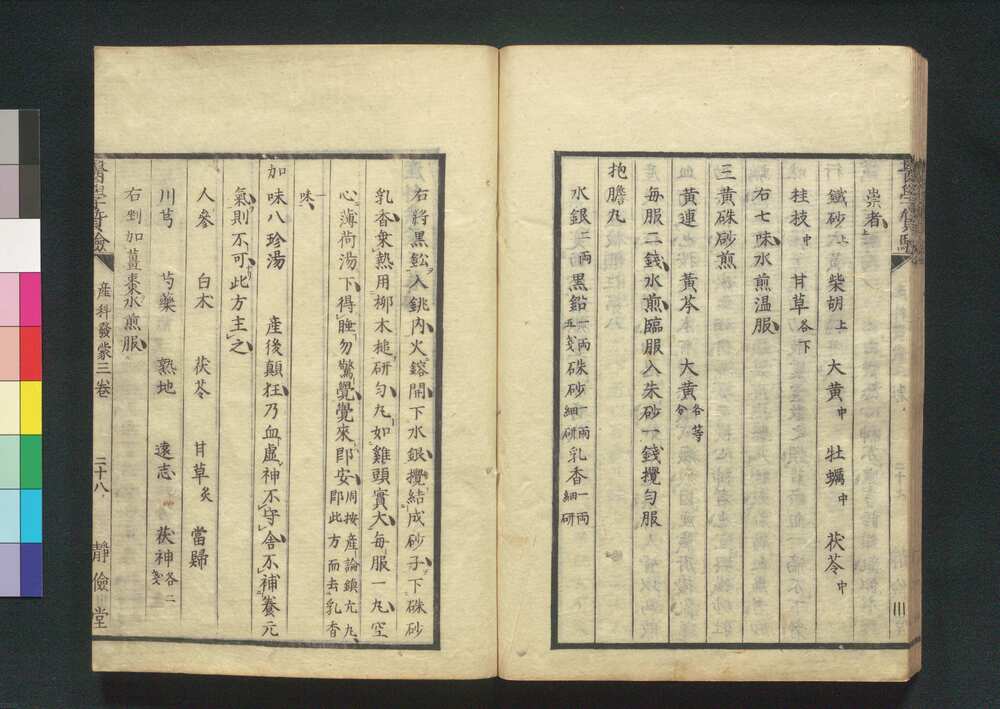 祟者
鐵砂上 柴胡上 大黃中 牡蠣中 茯苓中
桂枝中 甘草各下
右七味水煎温服
三黃硃砂煎
黃連 黃芩 大黃各等分
每服二錢水煎臨服入朱砂一錢攪勻服
抱膽丸
水銀二兩 黑鉛一兩五戔 硃砂一兩細研 乳香一兩細研
右將黑鈆入銚內火鎔開下水銀攪結成砂子下硃砂
乳香乘熱用柳木槌研勻丸如雞頭實大每服一丸空
心薄荷湯下得睡勿驚覺覺來即安周按產論鎮亢丸即此方而去乳香
一味
加味八珍湯 產後顛狂乃血虛神不守舍不補養元
氣則不可此方主之
人參 白朮 茯苓 甘草炙 當歸
川芎 芍藥 熟地 遠志 茯神各二戔
右剉加薑棗水煎服
產科發蒙三卷 二十八 靜儉堂